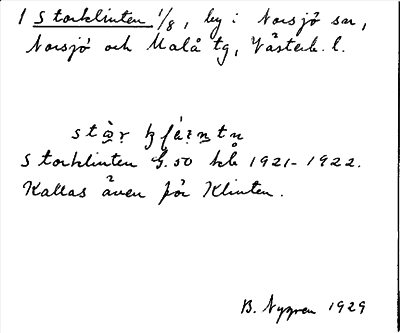 1 Storklinten 1/8, by i Norsjö sn,
Norsjö och Malå tg, Västerb. l.
Storklinten G.50 hb 1921-1922.
Kallas även för Klinten.
B. Nygren 1929